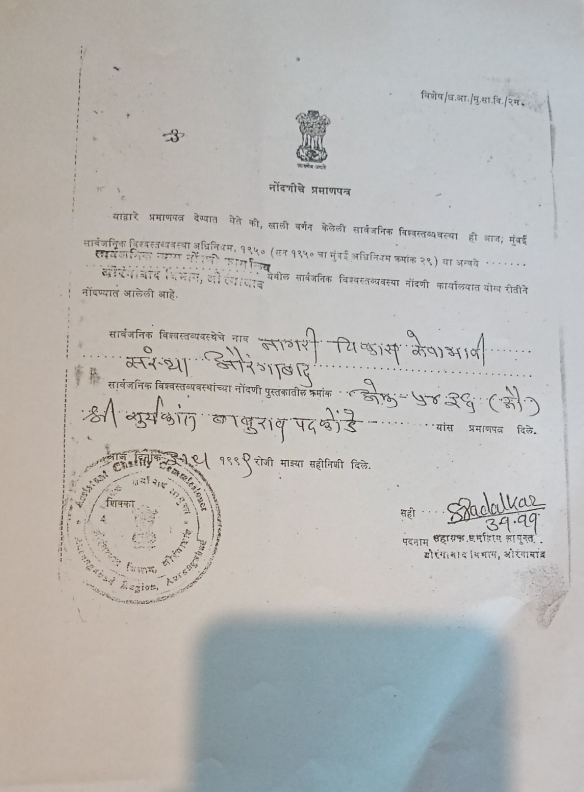 विशेष/ध.आ./मु.सा.वि./२म.
नोंदणीचे प्रमाणपत्र
याद्वारे प्रमाणपत्र देण्यात येते की, खाली वर्णन केलेली सार्वजनिक विश्वस्तव्यवस्था ही आज, मुंबई
सार्वजनिक विश्वस्तव्यवस्था अधिनियम, १९५० (सन १९५० चा मुंबई अधिनियम क्रमांक २९) या अन्वये ........
सार्वजनिक न्यास नोंदणी कार्यालय
औरंगाबाद विभाग, औरंगाबाद येथील सार्वजनिक विश्वस्तव्यवस्था नोंदणी कार्यालयात योग्य रीतीने
नोंदण्यात आलेली आहे.
सार्वजनिक विश्वस्तव्यवस्थेचे नाव नागरी विकास सेवाभावी
संस्था औरंगाबाद
सार्वजनिक विश्वस्तव्यवस्थांच्या नोंदणी पुस्तकातील क्रमांक ५४३६ (औ)
श्री सुर्यकांत बाबुराव यांस प्रमाणपत्र दिले.
आज दिनांक १९९९ रोजी माझ्या सहीनिशी दिले.
Assistant Charity Commissioner
शिक्का
Aurangabad Region, Aurangabad
सही
3.9.99
पदनाम सहाय्यक धर्मादाय आयुक्त,
औरंगाबाद विभाग, औरंगाबाद